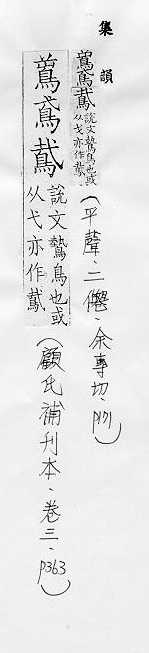 集韻
鳶
說文鷙鳥也或
从弋亦作
(平聲、二僊、余專切、p171)
鳶
說文鷙鳥也或
从弋亦作
(顧氏補刊本、卷三、p363)